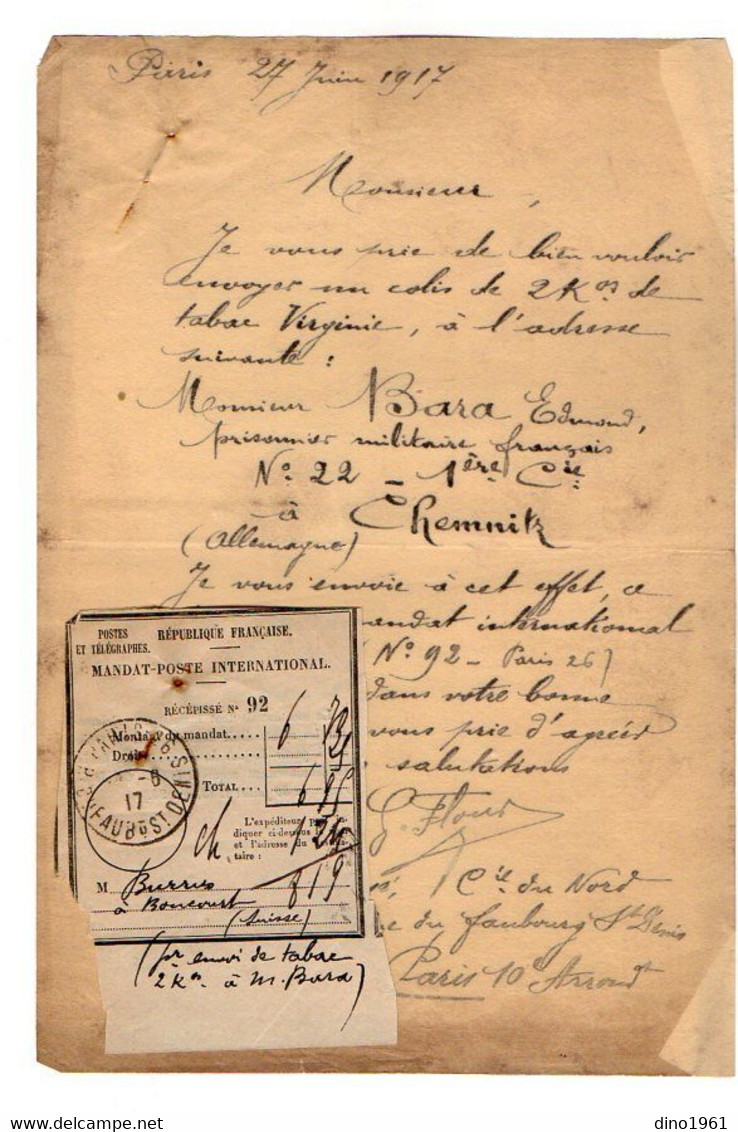 Paris 27 Juin 1917
Monsieur,
Je vous prie de bien vouloir
envoyer un colis de 2 Kos de
tabac Virginie, à l'adresse
suivante :
Monsieur Bara Edmond,
prisonnier militaire français
No. 22 - 1ère Cie
à Chemnitz
(Allemagne)
Je vous envoie à cet effet, ce
mandat international
No. 92 - Paris 26)
dans votre bonne
vous prie d'agréer
salutations
G. Flour
Cie du Nord
du faubourg St Denis
Paris 10e Arrondt
POSTES
ET TÉLÉGRAPHES.
RÉPUBLIQUE FRANÇAISE.
MANDAT-POSTE INTERNATIONAL.
RÉCÉPISSÉ No 92
Montant du mandat..... 6
Droit
TOTAL
L'expéditeur
diquer ci-dessous le
et l'adresse du
taire :
ch
M Burrus 819
à Boncourt
(Suisse)
(pr envoi de tabac
2 Kos. à M. Bara)
PARIS
17
FAUBG ST DENIS
dino1961